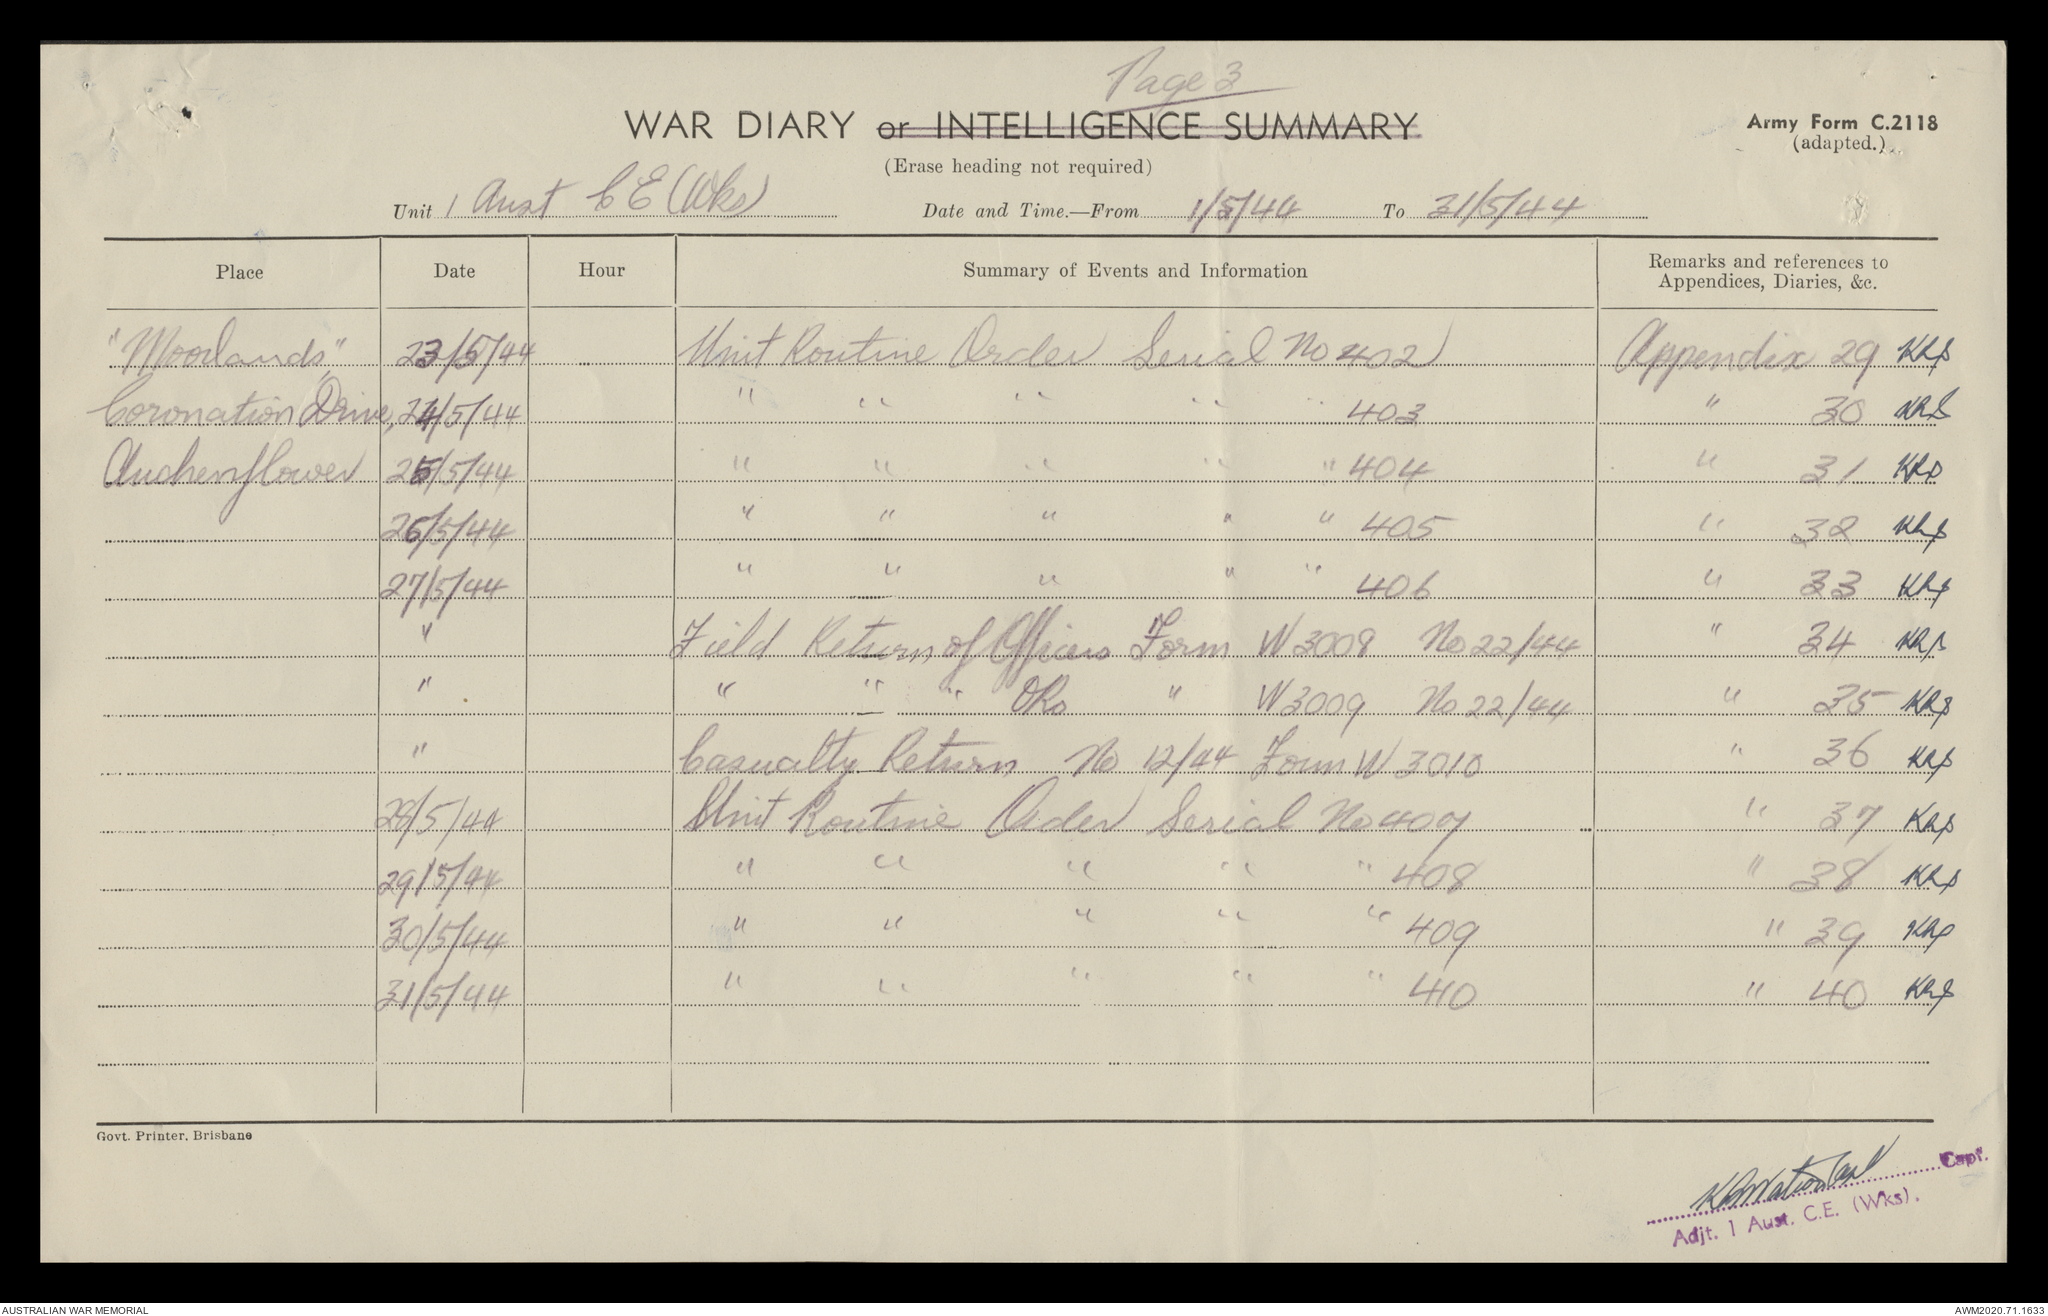 Page 3
WAR DIARY or INTELLIGENCE SUMMARY
Army Form C.2118
(adapted.)
(Erase heading not required)
Unit 1 Aust C E (Wks) Date and Time.—From 1/5/44 To 31/5/44
Place Date Hour Summary of Events and Information Remarks and references to Appendices, Diaries, &c.
"Moorlands," 23/5/44 Unit Routine Order Serial No 402 Appendix 29
Coronation Drive, 24/5/44 " " " " " 403 " 30
Auchenflower 25/5/44 " " " " " 404 " 31
26/5/44 " " " " " 405 " 32
27/5/44 " " " " " 406 " 33
" Field Return of Officers Form W 3008 No 22/44 " 34
" " " " ORs " W 3009 No 22/44 " 35
" Casualty Return No 12/44 Form W 3010 " 36
28/5/44 Unit Routine Order Serial No 407 " 37
29/5/44 " " " " " 408 " 38
30/5/44 " " " " " 409 " 39
31/5/44 " " " " " 410 " 40
Govt. Printer, Brisbane
Capt.
Adjt. 1 Aust. C.E. (Wks).
AUSTRALIAN WAR MEMORIAL
AWM2020.71.1633